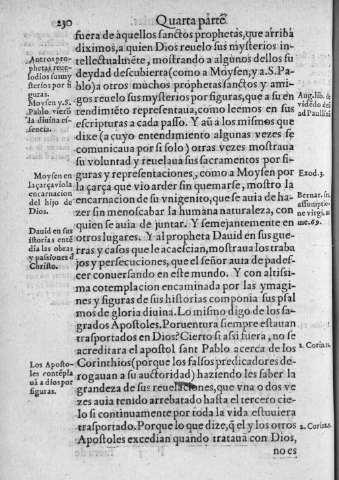 230
Quarta parte
fuera de aquellos sanctos prophetas, que arriba
diximos, a quien Dios reuelo sus mysterios in-
tellectualmẽte, mostrando a algunos dellos su
deydad descubierta (como a Moysen, y a S. Pa-
blo) a otros muchos prophetas sanctos y ami-
gos reuelo sus mysterios por figuras, que a su en
tendimiẽto representaua, como leemos en sus
escripturas a cada passo. Y aũ a los mismos que
dixe (a cuyo entendimiento algunas vezes se
comunicaua por si solo) otras vezes mostraua
su voluntad y reuelaua sus sacramentos por fi-
guras y representaciones, como a Moysen por
la çarça que vio arder sin quemarse, mostro la
encarnacion de su vnigenito, que se auia de ha-
zer sin menoscabar la humana naturaleza, con
quien se auia de juntar. Y semejantemente en
otros lugares. Y al propheta Dauid en sus gue-
rras y casos que le acaescian, mostraua los traba
jos y persecuciones, que el señor auia de padef-
cer conuersando en este mundo. Y con altissi-
ma cotemplacion encaminada por las ymagi-
nes y figuras de sus historias componia sus psal
mos de gloria diuina. Lo mismo digo de los sa-
grados Apostoles. Poruentura siempre estauan
trasportados en Dios? Cierto si assi fuera, no se
acreditara el apostol sant Pablo acerca de los
Corinthios (porque los falsos predicadores de-
rogauan a su auctoridad) haziendo les saber la
grandeza de sus reuelaciones, que vna o dos ve-
zes auia tenido arrebatado hasta el tercero cie-
lo si continuamente por toda la vida estouiera
trasportado. Porque lo que dize, q̃ el y los otros
Apostoles excedian quando trataua con Dios,
no es
Antros pro-
phetas reue-
lo dios sus my
sterios por fi
guras.
Moysen y. S.
Pablo vierõ
la diuina es-
sencia.
Moysen en
la çarça vio la
encarnacion
del hijo de
Dios.
Dauid en sus
istorias entẽ
dia las obras
y passiones d̃
Christo.
Los Aposto-
les contẽpla
uã a dios por
figuras.
Aug. lib. d̃
vidẽdo deũ
ad Paulinã
Exod. 3.
Bernar. in
assumptio-
ne virgi.
me. 69.
2. Cori. 12.
2. Cori.